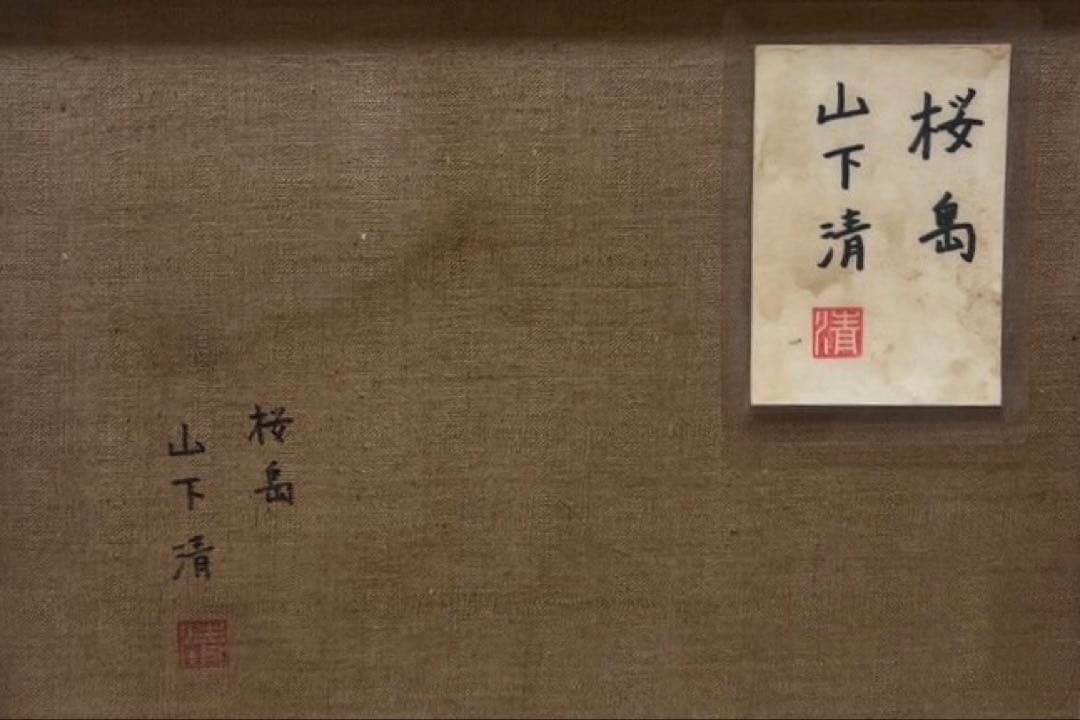 桜島
山下清
清
桜島
山下清
清